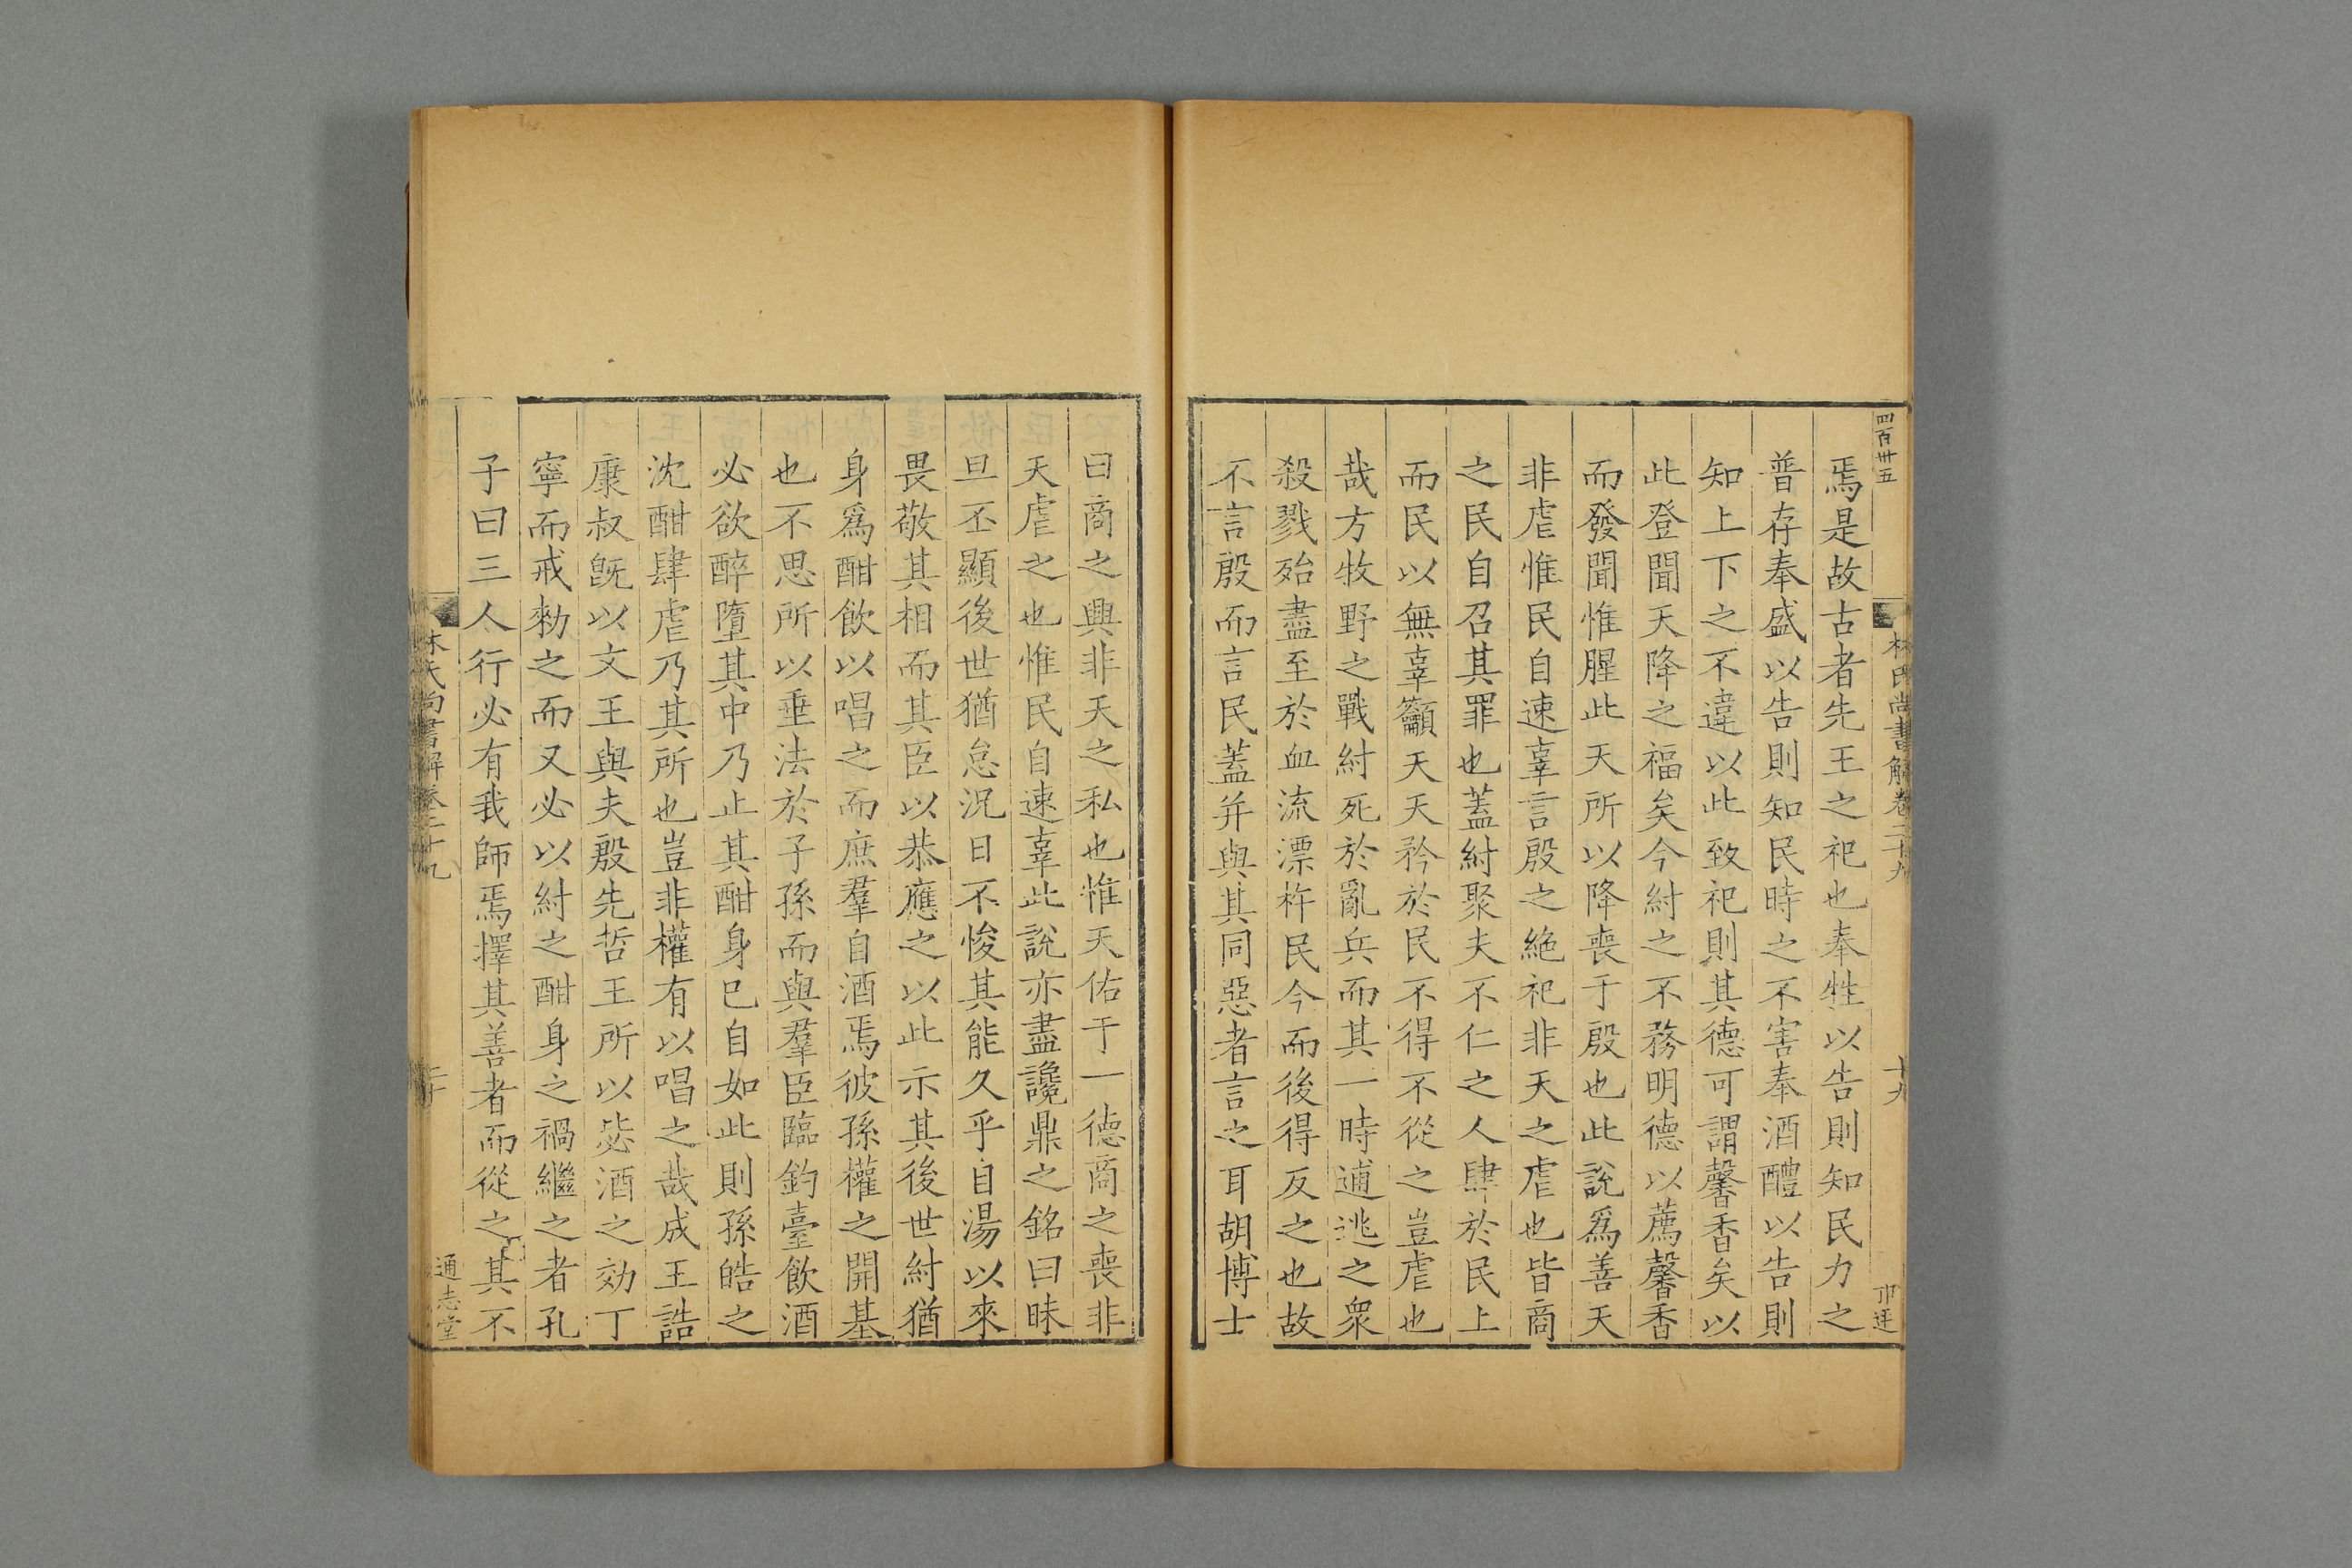 四百卅五
林氏尚書解卷二十九
十九
焉是故古者先王之祀也奉牲以告則知民力之
普存奉盛以告則知民時之不害奉酒醴以告則
知上下之不違以此致祀則其德可謂馨香矣以
此登聞天降之福矣今紂之不務明德以薦馨香
而發聞惟腥此天所以降喪于殷也此說爲善天
非虐惟民自速辜言殷之絶祀非天之虐也皆商
之民自召其罪也蓋紂聚夫不仁之人肆於民上
而民以無辜籲天天矜於民不得不從之豈虐也
哉方牧野之戰紂死於亂兵而其一時逋逃之衆
殺戮殆盡至於血流漂杵民今而後得反之也故
不言殷而言民蓋并與其同惡者言之耳胡博士
曰商之興非天之私也惟天佑于一德商之喪非
天虐之也惟民自速辜此說亦盡讒鼎之銘曰昧
旦丕顯後世猶怠況日不悛其能久乎自湯以來
畏敬其相而其臣以恭應之以此示其後世紂猶
身爲酣飲以唱之而庶羣自酒焉彼孫權之開基
也不思所以垂法於子孫而與羣臣臨釣臺飲酒
必欲醉墮其中乃止其酣身巳自如此則孫皓之
沈酣肆虐乃其所也豈非權有以唱之哉成王誥
康叔旣以文王與夫殷先哲王所以毖酒之効丁
寧而戒勑之而又必以紂之酣身之禍繼之者孔
子曰三人行必有我師焉擇其善者而從之其不
林氏尚書解卷二十九
二十
通志堂